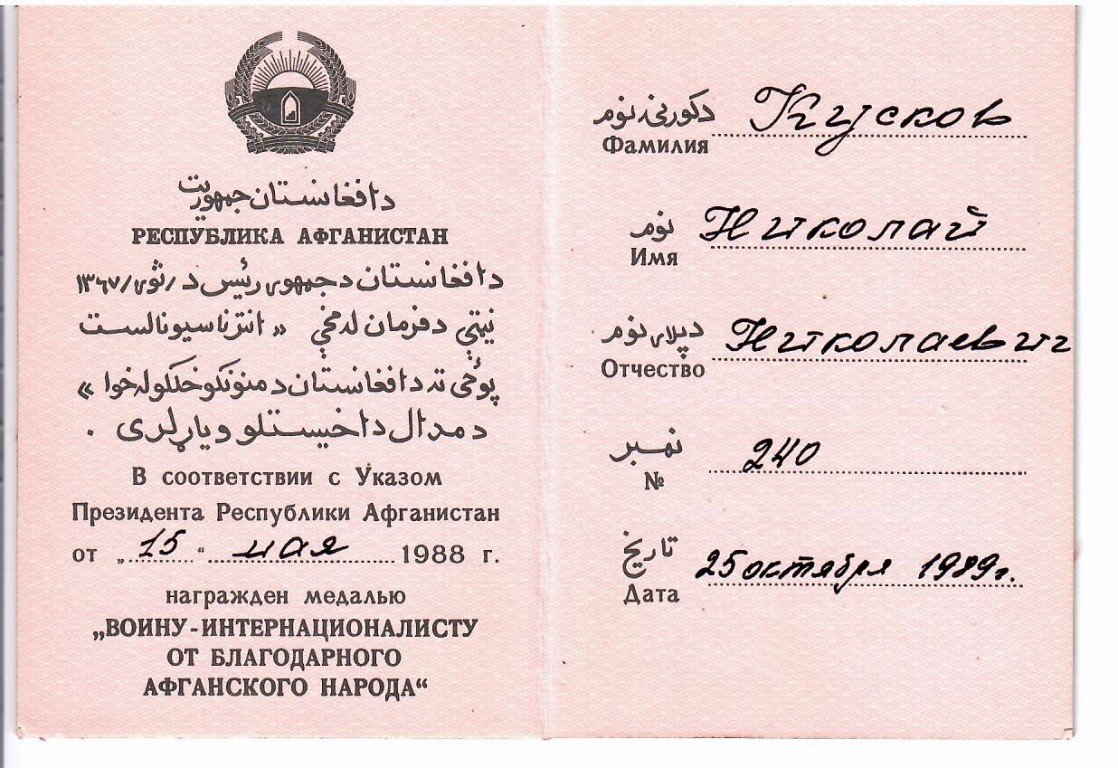 د افغانستان جمهوریت
РЕСПУБЛИКА АФГАНИСТАН
د افغانستان د جمهوری رئیس د /ثوری/ ۱۳۶۷
نیټی د فرمان له مخی « انترناسیونالست
پوځی ته د افغانستان د منونکو خلکو له خوا »
د مدال د اخیستلو ویاړ لری .
В соответствии с Указом
Президента Республики Афганистан
от „15“ мая 1988 г.
награжден медалью
„ВОИНУ-ИНТЕРНАЦИОНАЛИСТУ
ОТ БЛАГОДАРНОГО
АФГАНСКОГО НАРОДА“
د کورنی نوم Кусков
Фамилия
نوم Николай
Имя
د پلار نوم Николаевич
Отчество
نمبر 240
№
تاریخ 25 октября 1989г.
Дата